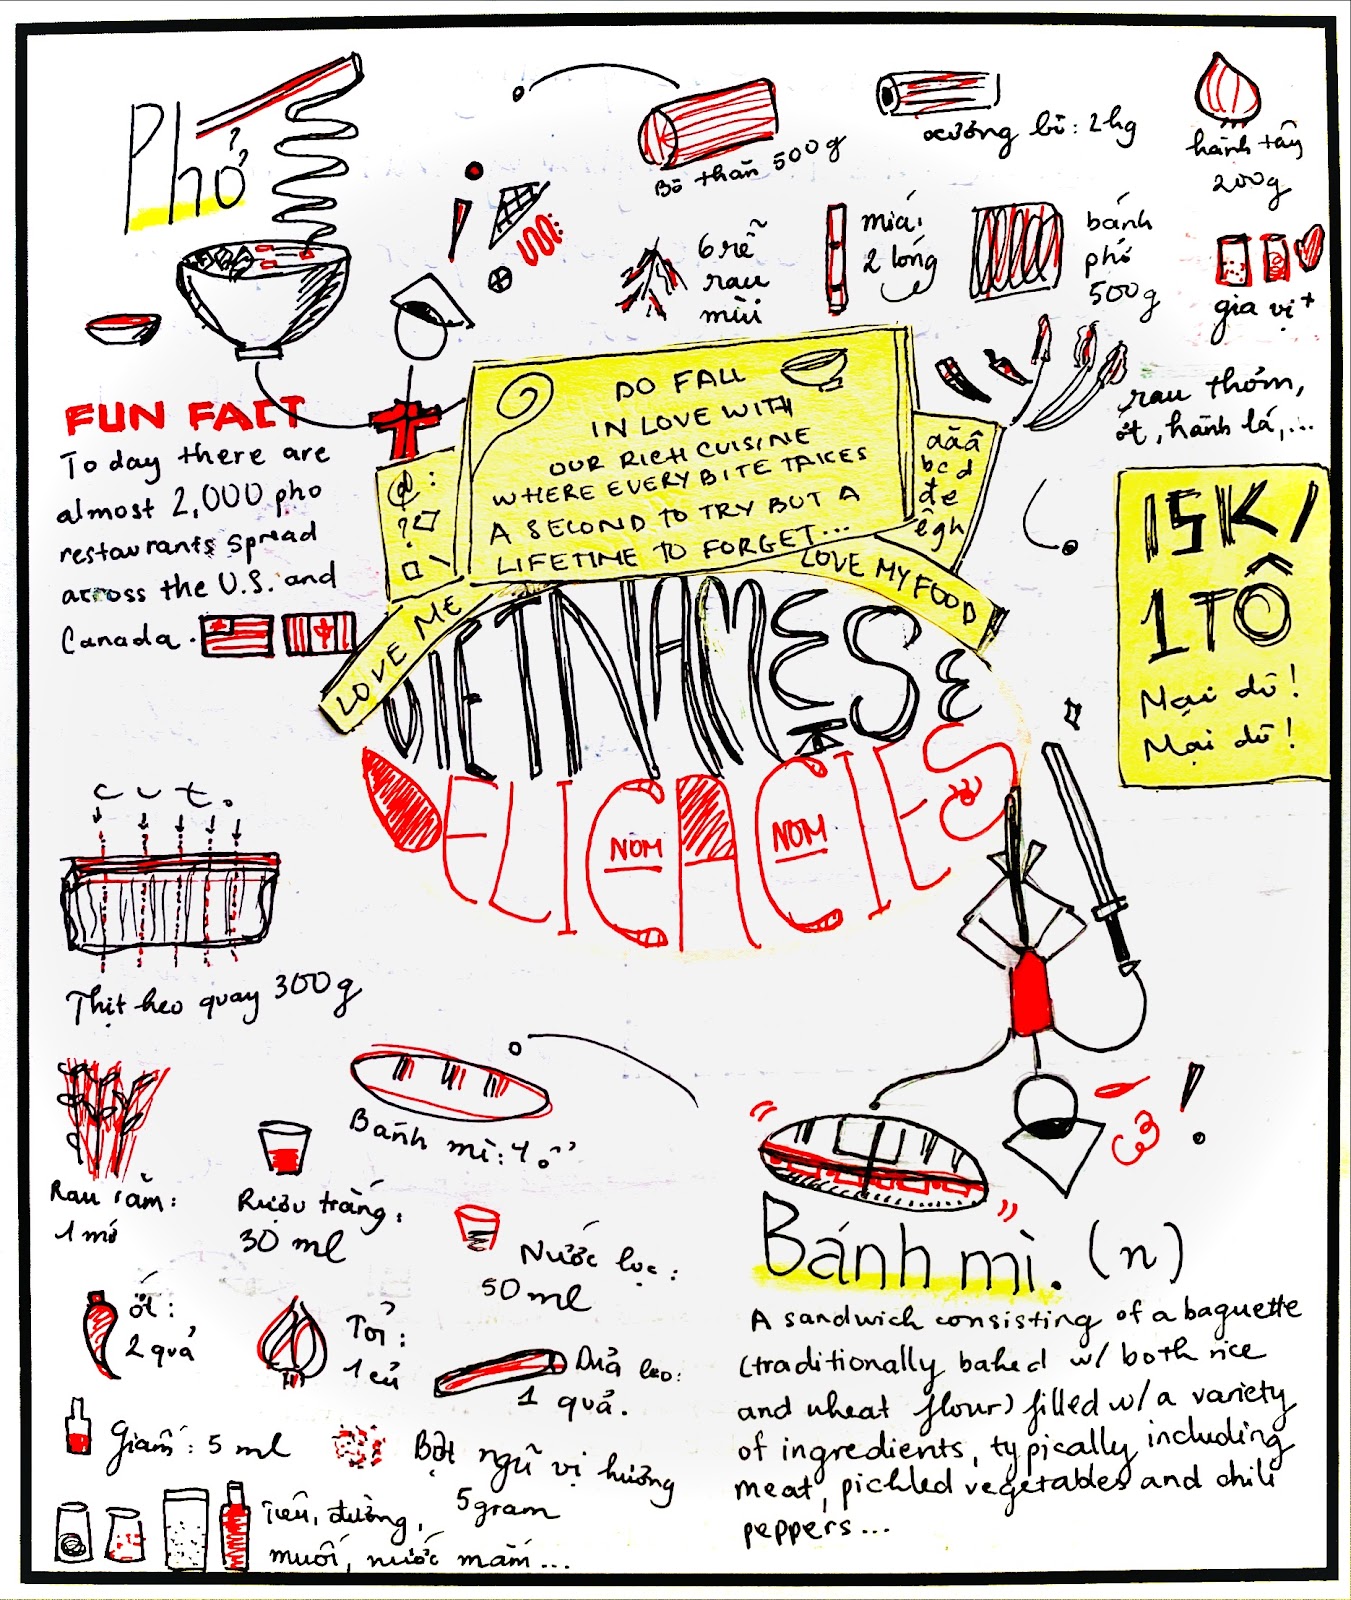 Phở
Bò thăn 500g
xương bò: 2kg
hành tây
200g
6 rễ
rau
mùi
mía:
2 lóng
bánh
phở
500g
gia vị +
rau thơm,
ớt, hành lá,...
FUN FACT
Today there are
almost 2,000 pho
restaurants spread
across the U.S. and
Canada.
DO FALL
IN LOVE WITH
OUR RICH CUISINE
WHERE EVERY BITE TAKES
A SECOND TO TRY BUT A
LIFETIME TO FORGET...
@ :
?
aăâ
bcd
đe
êgh
LOVE ME
LOVE MY FOOD
VIETNAMESE
DELICACIES
NOM
NOM
15K/
1 TÔ
Mại dô!
Mại dô!
cut.
Thịt heo quay 300g
Bánh mì: 4 ổ
Rau răm:
1 mớ
Rượu trắng:
30 ml
Nước lọc:
50 ml
Ớt:
2 quả
Tỏi:
1 củ
Dưa leo:
1 quả.
Giấm: 5 ml
Bột ngũ vị hương
5gram
Tiêu, đường,
muối, nước mắm...
Bánh mì. (n)
A sandwich consisting of a baguette
(traditionally baked w/ both rice
and wheat flour) filled w/ a variety
of ingredients, typically including
meat, pickled vegetables and chili
peppers...